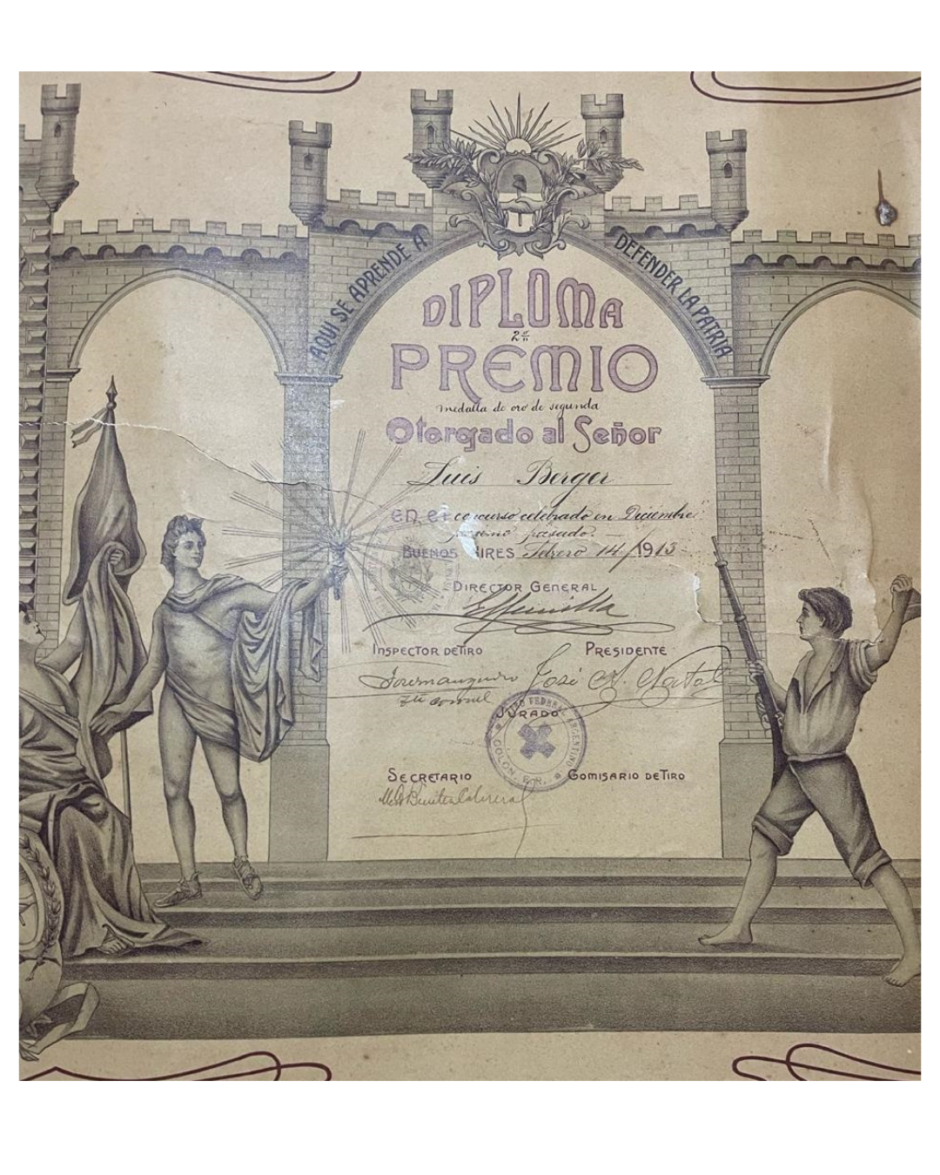 AQUI SE APRENDE A DEFENDER LA PATRIA
DIPLOMA
2º
PREMIO
medalla de oro de segunda
Otorgado al Señor
Luis Berger
EN El concurso celebrado en Diciembre
pasado.
BUENOS AIRES Febrero 14/1913
DIRECTOR GENERAL
INSPECTOR DE TIRO PRESIDENTE
José A. Natal
JURADO
TIRO FEDERAL ARGENTINO
COLON
SECRETARIO COMISARIO DE TIRO